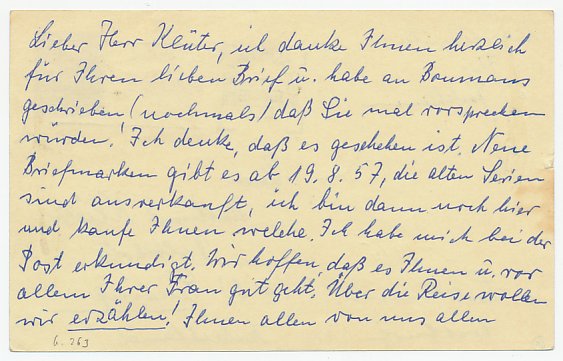 Lieber Herr Klüter, ich danke Ihnen herzlich
für Ihren lieben Brief u. habe an Boumans
geschrieben (nochmals) daß Sie mal vorsprechen
würden! Ich denke, daß es geschehen ist. Neue
Briefmarken gibt es ab 19.8.57, die alten Serien
sind ausverkauft, ich bin dann noch hier
und kaufe Ihnen welche. Ich habe mich bei der
Post erkundigt. Wir hoffen, daß es Ihnen u. vor
allem Ihrer Frau gut geht. Über die Reise wollen
wir erzählen! Ihnen allen von uns allen
6.263